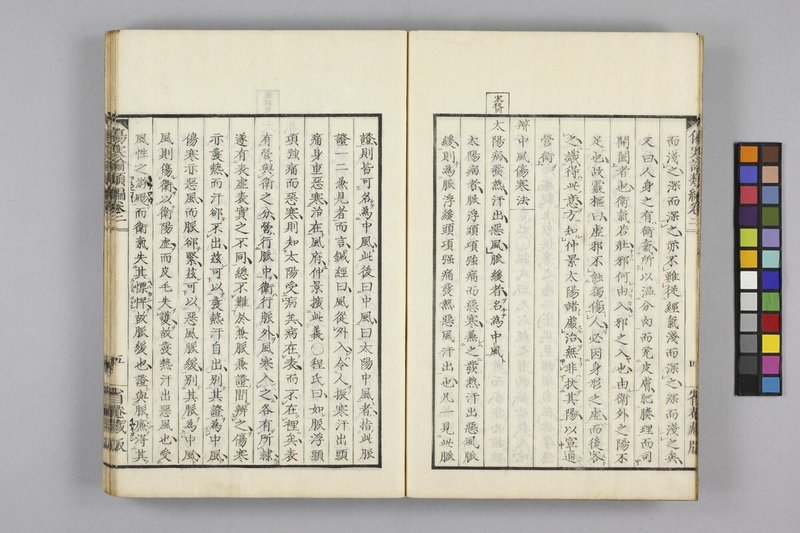 而淺之深而深之亦不難從經氣淺而深之深而淺之矣
又曰人身之有衛氣所以溫分肉而充皮膚肥腠理而司
開闔者也衛氣若壯邪何由入邪之入也由衛外之陽不
足也故靈樞曰虛邪不能獨傷人必因身形之虛而後客
之識得此意方知仲景太陽諸處治無非扶其陽以宣通
營衛
辨中風傷寒法
太陽病發熱汗出惡風脈緩者名為中風
太陽病者脈浮頭項強痛而惡寒兼之發熱汗出惡風脈
緩則為脈浮緩頭項強痛發熱惡風汗出也凡一見此脈
證則皆可名為中風此後曰中風曰太陽中風者指此脈
證一二兼見者而言鍼經曰風從外入令人振寒汗出頭
痛身重惡寒治在風府仲景擴此義〇程氏曰如脈浮頭
項強痛而惡寒則知太陽受病矣病在表而不在裡矣表
有營與衛之分營行脈中衛行脈外風寒入之各有所隸
遂有表虛表實之不同總不難於兼脈兼證間辨之傷寒
亦發熱而汗卻不出茲可以發熱汗自出別其證為中風
傷寒亦惡風而脈卻緊茲可以惡風脈緩別其脈為中風
風則傷衛以衛陽虛而皮毛失護故發熱汗出惡風也受
風性之游颺而衛氣失其慓悍故脈緩也證與脈應得其
傷寒論類編卷二
五